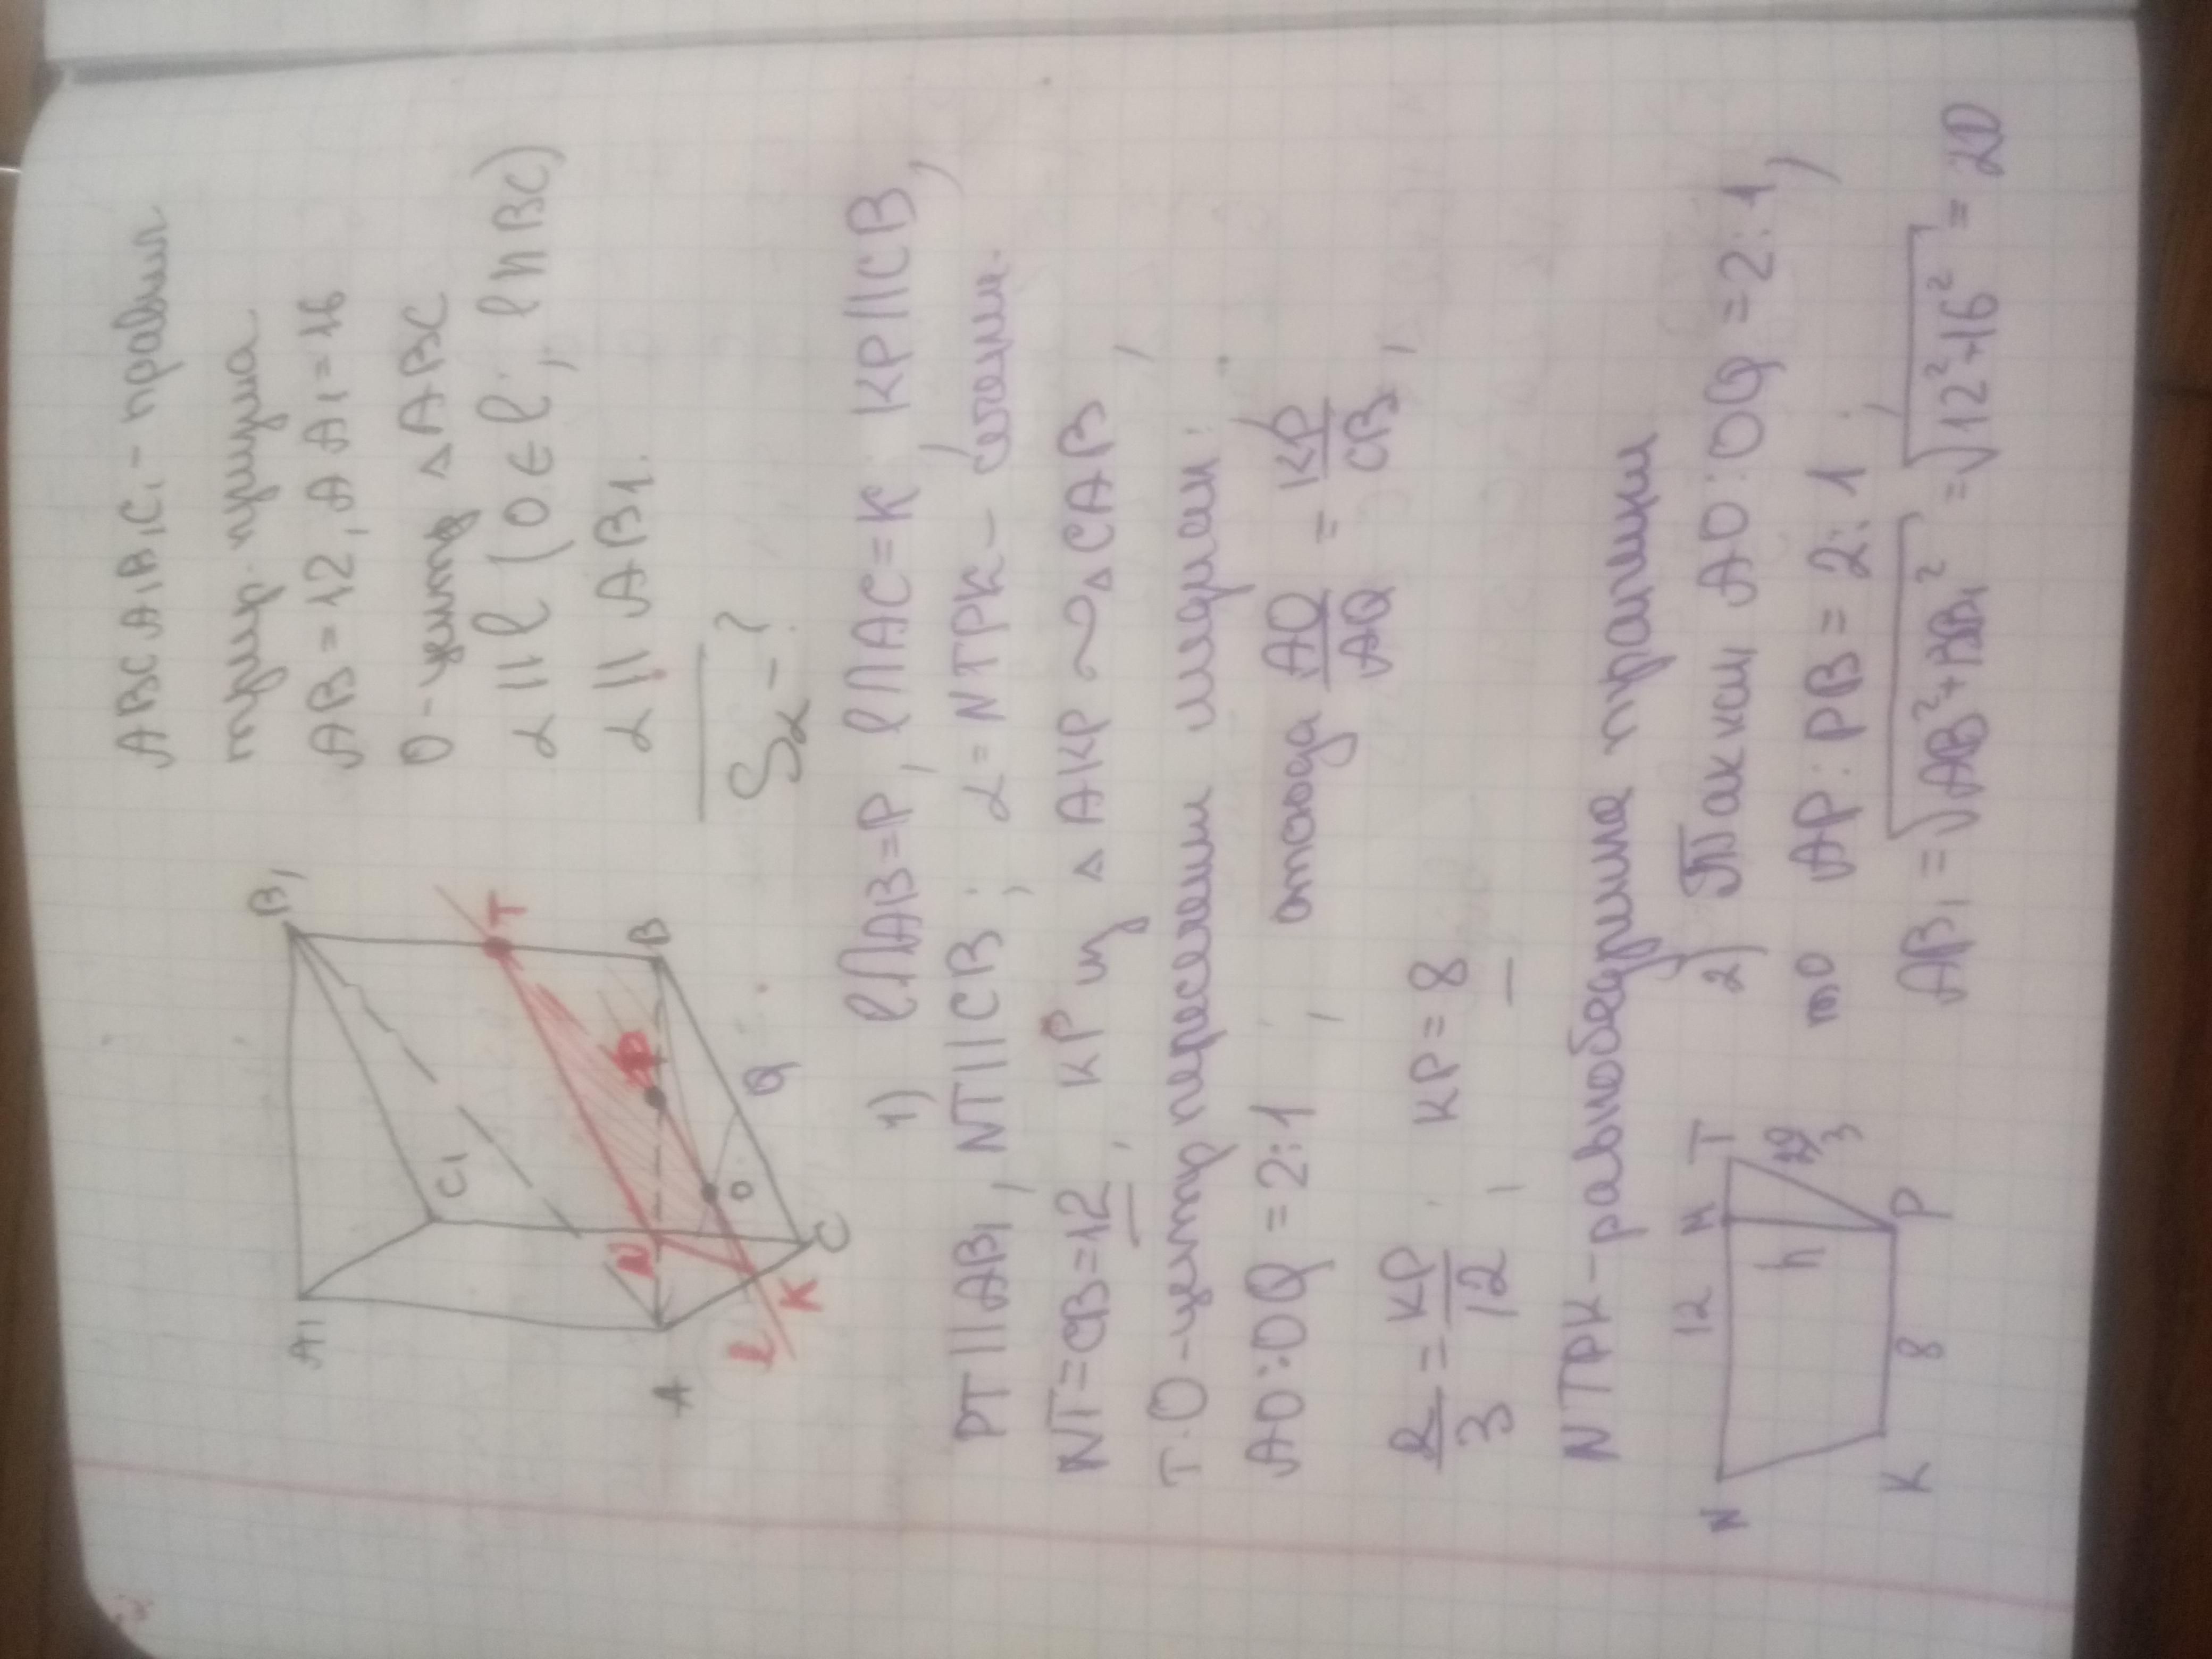 ABCA₁B₁C₁ - правил.
треуг. призма
AB = 12, AA₁ = 16
O - центр △ABC
α || l (O ∈ l; l ∩ BC)
α || AB₁.
Sα - ?
A₁
B₁
C₁
A
B
C
N
T
P
O
Q
K
l
1) l∩AB=P, l∩AC=K, KP||CB,
PT||AB₁, NT||CB; α=NTPK-
NT=CB=12, KP из △AKP ~ △CAB,
т.O-центр пересечен. медиан.
AO:OQ=2:1, отсюда AO/AQ = KP/CB,
2/3 = KP/12, KP = 8
NTPK-равнобедрина трапеции
N 12 M T
h
20/3
K 8 P
2) Так как AO:OQ=2:1,
то AP:PB=2:1,
AB₁ = √AB²+BB₁² = √12²+16² = 20